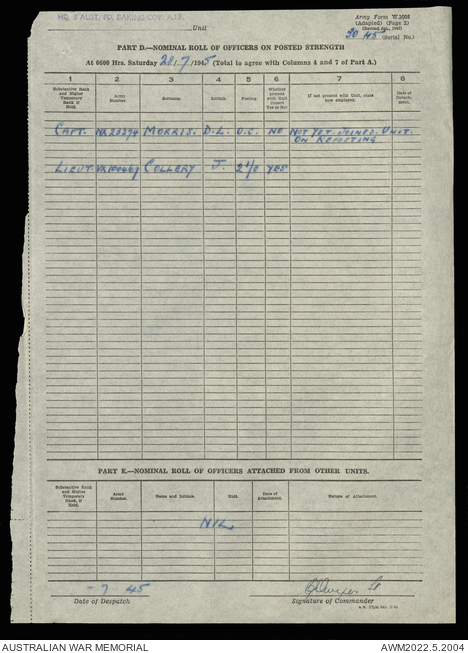 HQ. 3 AUST. FD. BAKING COY. A.I.F.
Unit
Army Form W.3008
(Adapted) (Page 2)
(Revised 1945)
30 45
(Serial No.)
PART D.—NOMINAL ROLL OF OFFICERS ON POSTED STRENGTH
At 0600 Hrs. Saturday 28/7/1945 (Total to agree with Columns 4 and 7 of Part A.)
1 2 3 4 5 6 7 8
Substantive Rank and Higher Temporary Rank if Held.
Army Number.
Surname.
Initials.
Posting.
Whether present with Unit (Insert Yes or No)
If not present with Unit, state how employed.
Date of Detachment.
CAPT. NX23294 MORRIS. D.L. O.C. NO NOT YET JOINED UNIT.
ON REPOSTING
LIEUT. COLLERY J. 2 I/C YES
PART E.—NOMINAL ROLL OF OFFICERS ATTACHED FROM OTHER UNITS.
Substantive Rank and Higher Temporary Rank, if Held.
Army Number.
Name and Initials.
Unit.
Date of Attachment.
Nature of Attachment.
NIL
- 7 - 45
Date of Despatch
Signature of Commander
AUSTRALIAN WAR MEMORIAL
AWM2022.5.2004